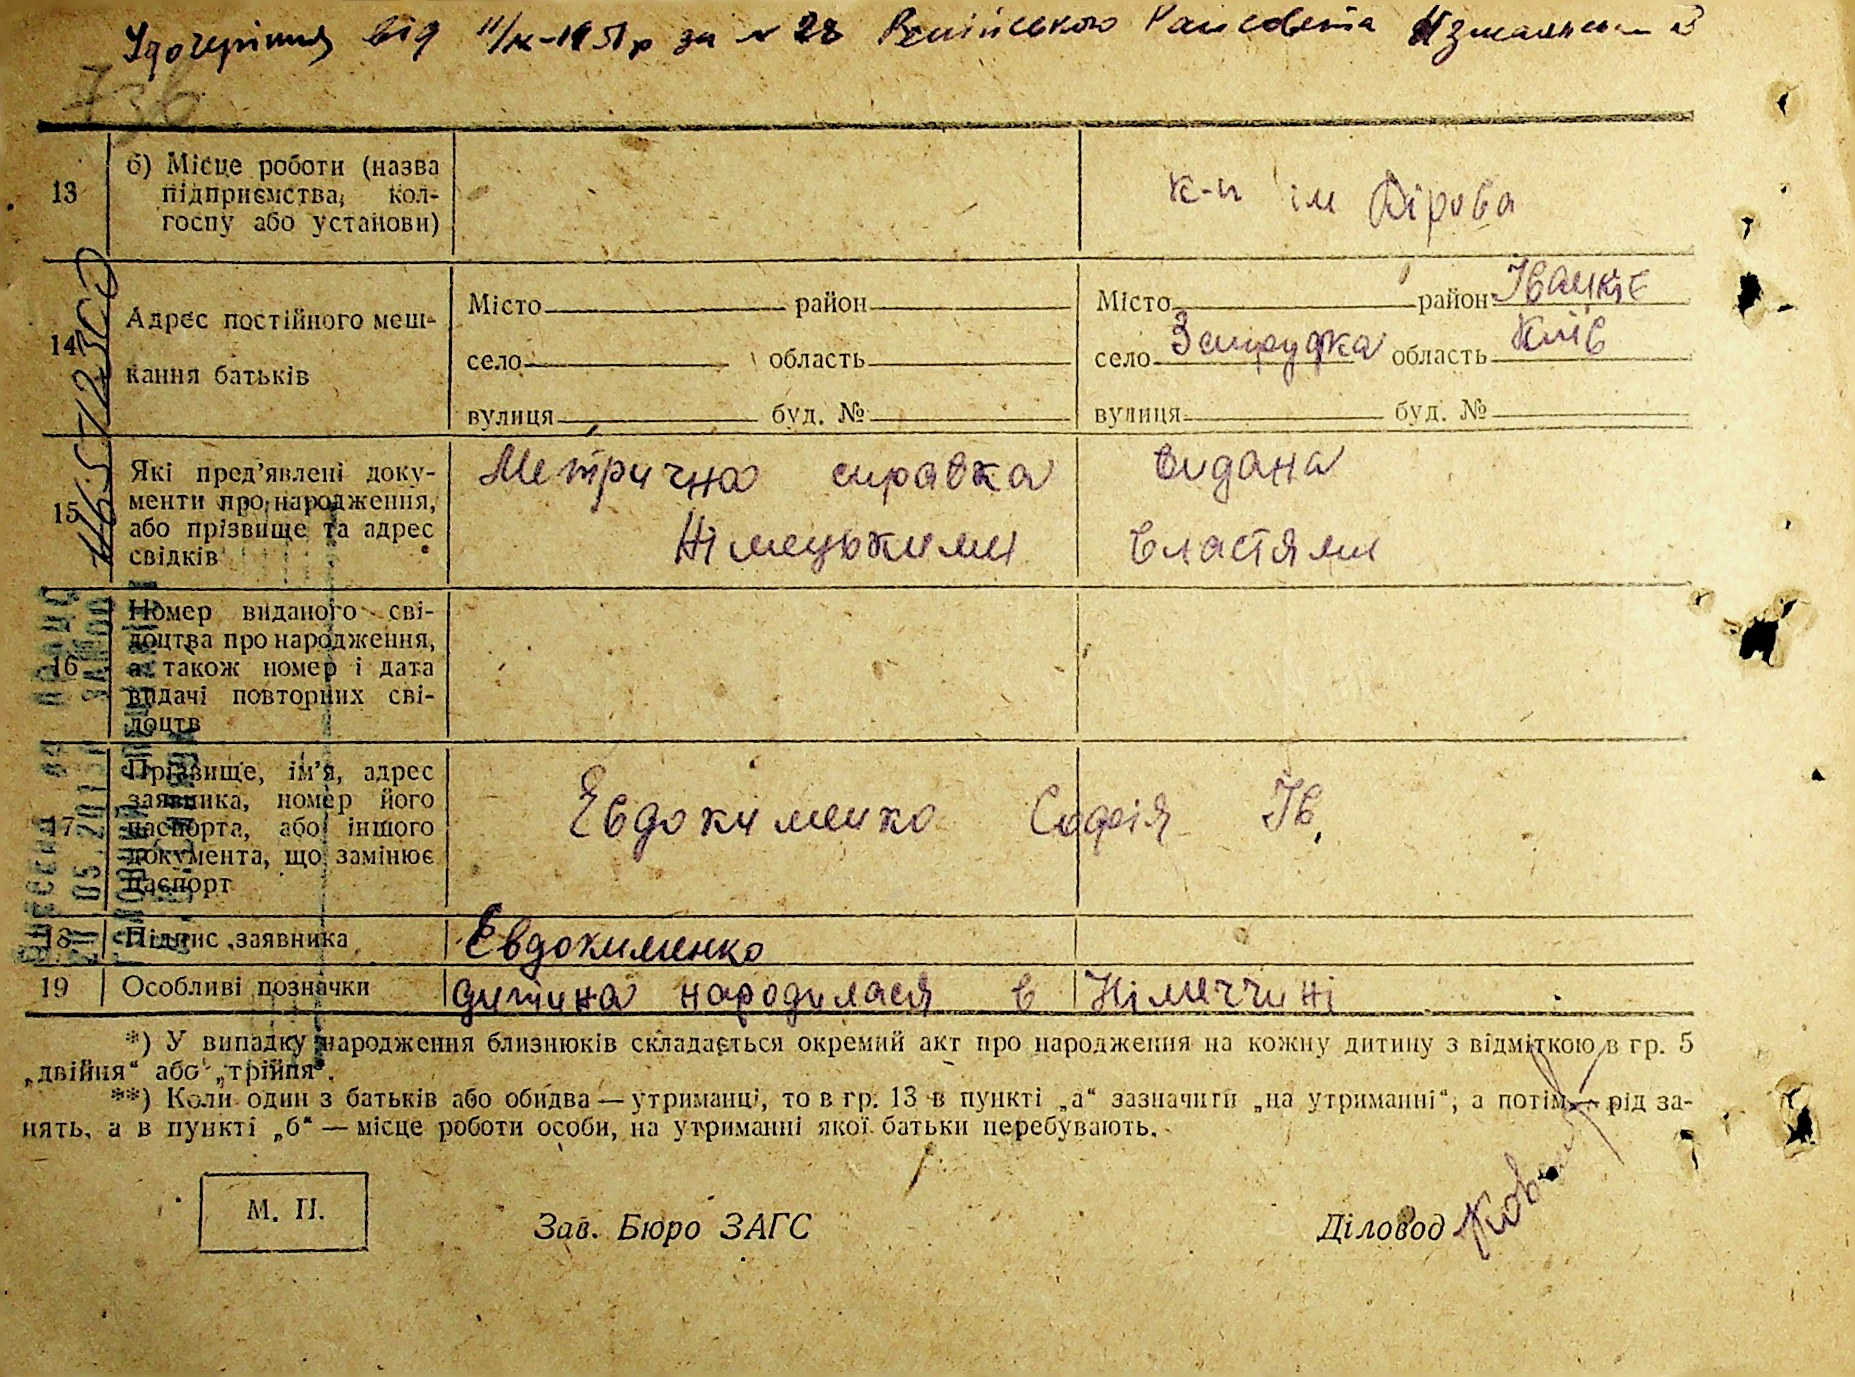 Удочеріння від 11/ІХ-1951р за № 28 Ренійського Райсовета Ізмаильськ
736
13 б) Місце роботи (назва підприємства, кол-
госпу або установи)
к-п ім Кірова
14 Адрес постійного меш-
кання батьків
Місто район Місто район Іванків
село область село Запрудка область Київ
вулиця буд. № вулиця буд. №
15 Які пред’явлені доку-
менти про народження,
або прізвище та адрес
свідків
Метрична справка видана
Німецькими властями
16 Номер виданого сві-
доцтва про народження,
а також номер і дата
видачі повторних сві-
доцтв
17 Прізвище, ім’я, адрес
заявника, номер його
паспорта, або іншого
документа, що замінює
паспорт
Євдокименко Софія Ів.
18 Підпис заявника Євдокименко
19 Особливі позначки дитина народилася в Німеччині
*) У випадку народження близнюків складається окремий акт про народження на кожну дитину з відміткою в гр. 5
„двійня“ або „трійня“.
**) Коли один з батьків або обидва — утриманці, то в гр. 13 в пункті „а“ зазначити „на утриманні“, а потім — рід за-
нять, а в пункті „б“ — місце роботи особи, на утриманні якої батьки перебувають.
М. П. Зав. Бюро ЗАГС Діловод